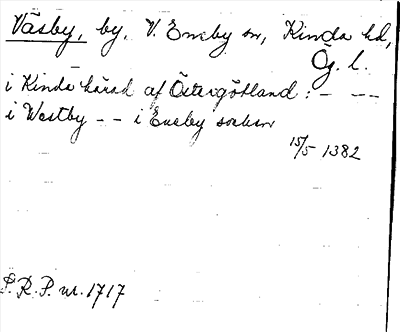 Väsby, by, V. Eneby sn, Kinda hd,
Ög. l.
i Kinda härad af Östergötland: - - -
i Westby - - i Eneby socken
15/5 1382
S.R.P. nr. 1717